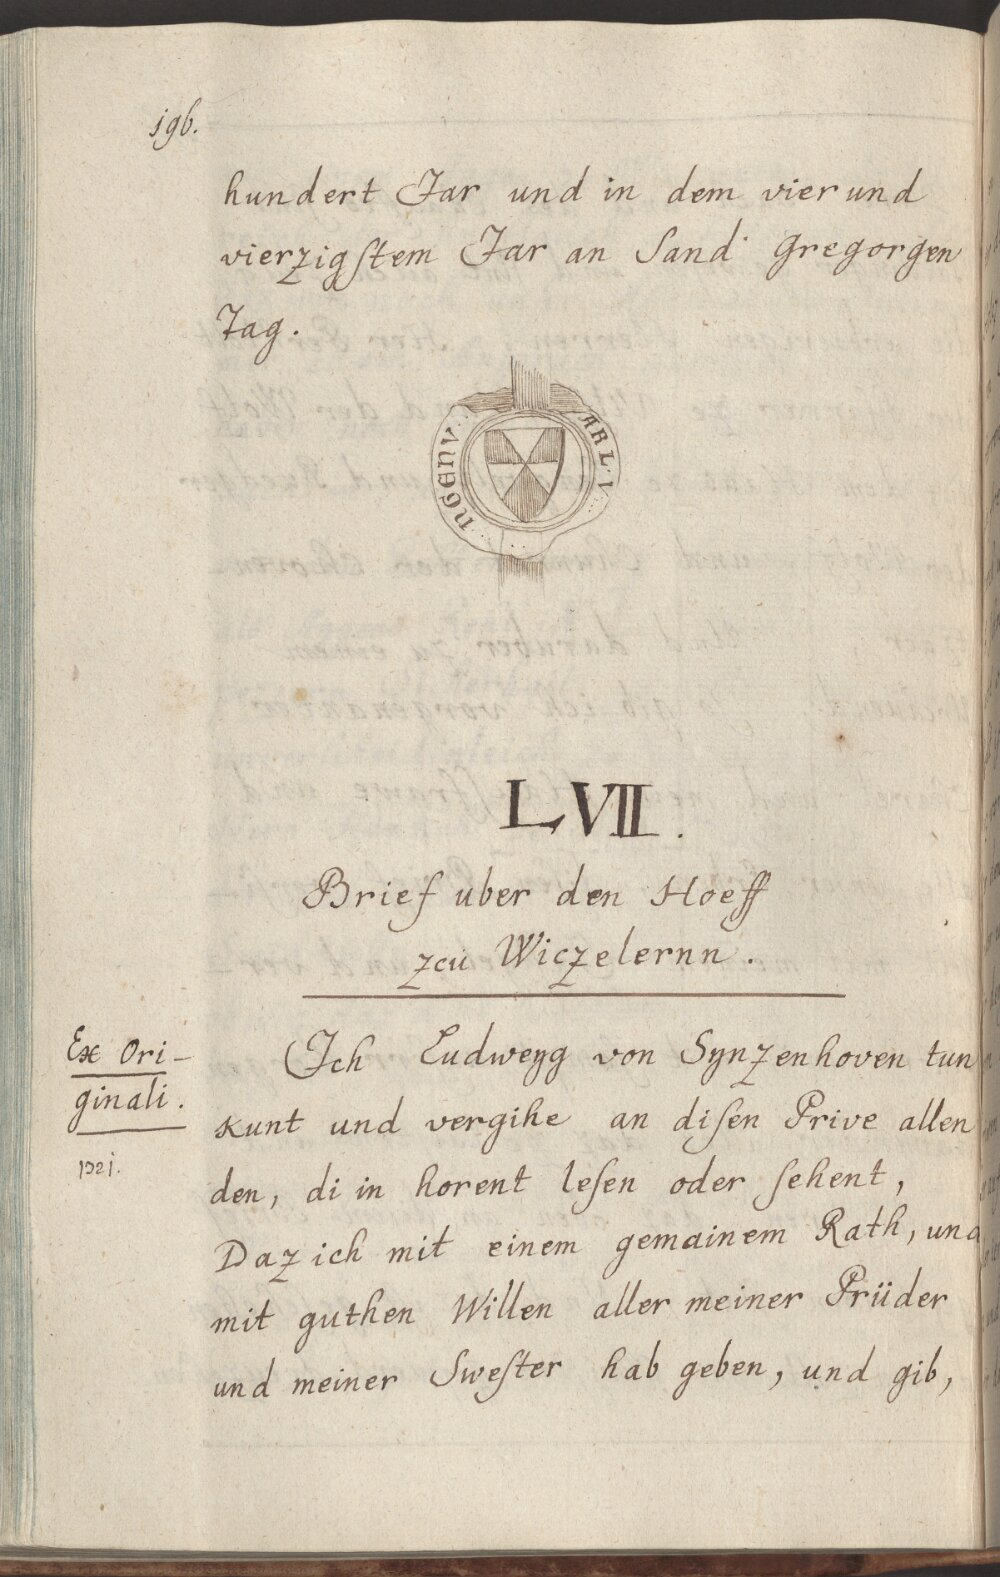 196.
hundert Jar und in dem vier und
vierzigstem Jar an Sand Gregorgen
Tag.
ARL. V
NGENV
LVII.
Brief uber den Hoeff
zcu Wiczelernn.
Ex Ori-
ginali.
Ich Ludweyg von Synzenhoven tun
kunt und vergihe an disen Prive allen
den, di in horent lesen oder sehent,
Daz ich mit einem gemainem Rath, und
mit guthen Willen aller meiner Prüder
und meiner Swester hab geben, und gib,